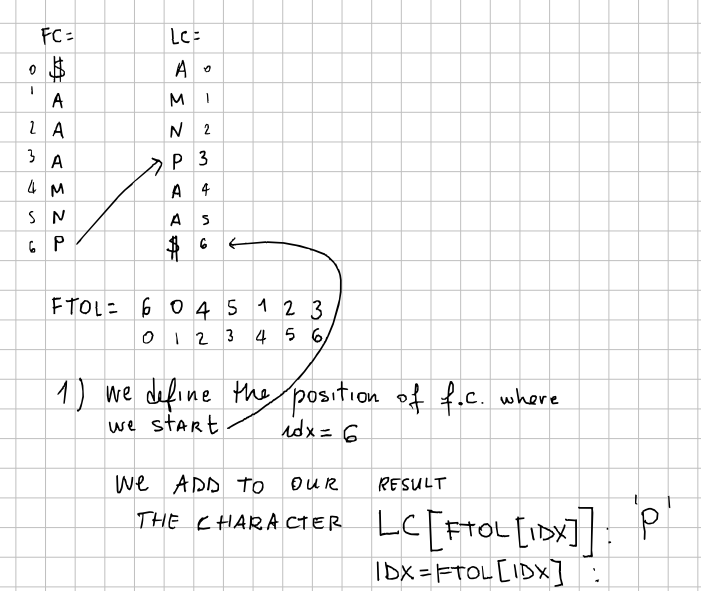 FC= LC=
0 $ A 0
1 A M 1
2 A N 2
3 A P 3
4 M A 4
5 N A 5
6 P $ 6
FTOL= 6 0 4 5 1 2 3
0 1 2 3 4 5 6
1) we define the position of f.c. where
we START idx= 6
WE ADD TO OUR RESULT
THE CHARACTER LC[FTOL[IDX]]: 'P'
IDX=FTOL[IDX] :